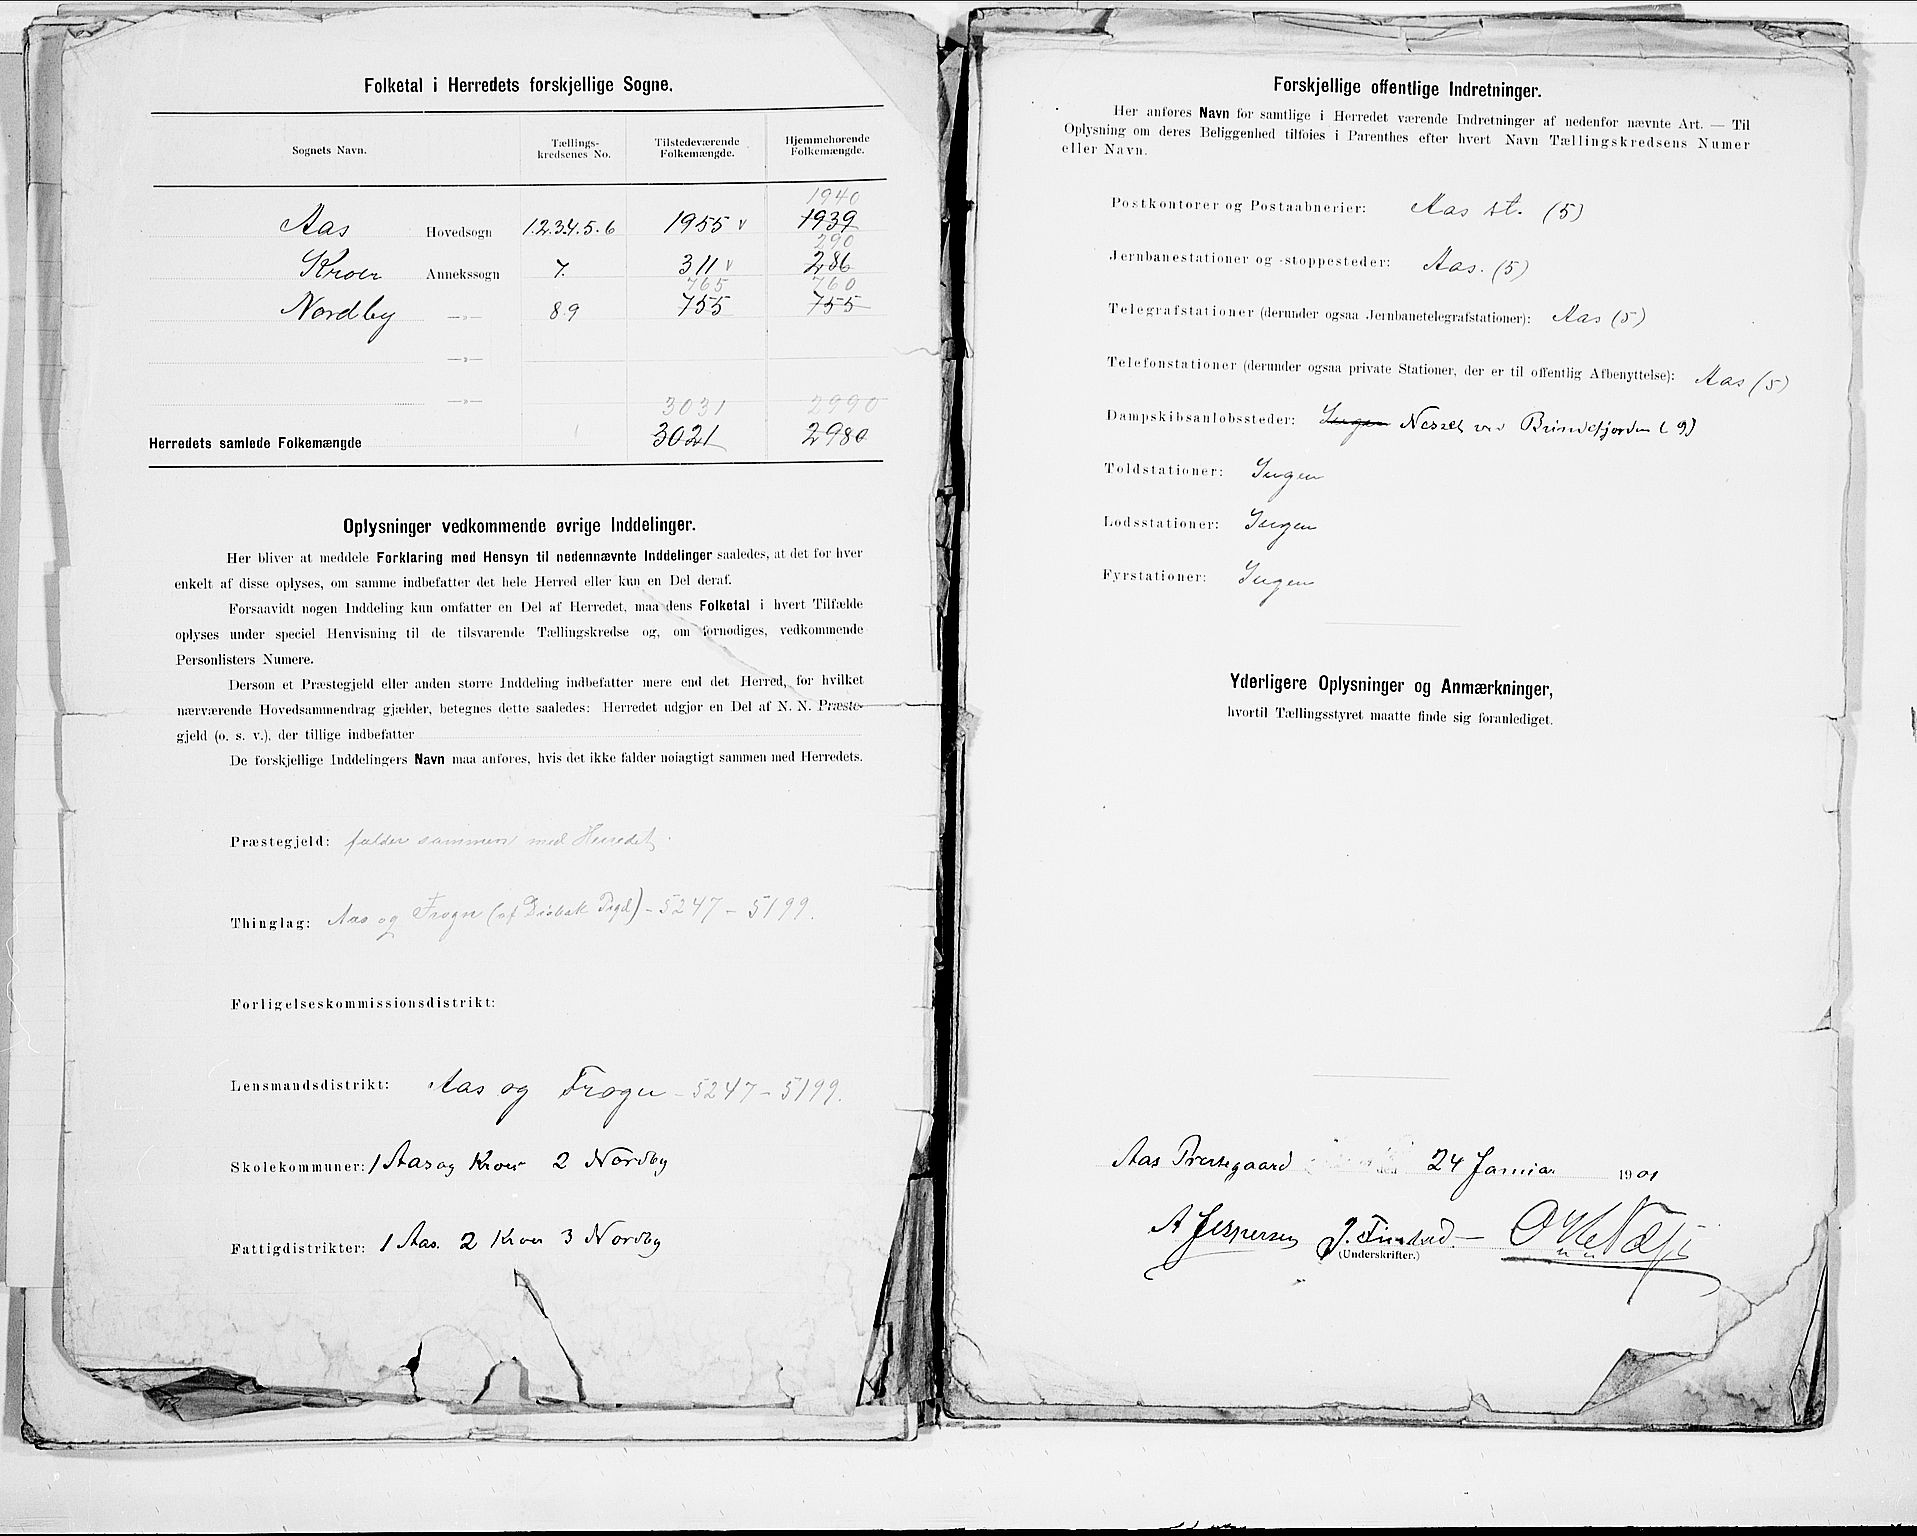 Folketal i Herredets forskjellige Sogne.
Sognets Navn.
Tællings-
kredsenes No.
Tilstedeværende
Folkemængde.
Hjemmehørende
Folkemængde.
1940
Aas Hovedsogn 1.2.3.4.5.6 1955 v 1939
290
Kroer Annekssogn 7. 311 v 286
765 760
Nordby —„— 8.9 755 755
—„—
—„—
3031 2990
Herredets samlede Folkemængde 3021 2980
Oplysninger vedkommende øvrige Inddelinger.
Her bliver at meddele Forklaring med Hensyn til nedennævnte Inddelinger saaledes, at det for hver
enkelt af disse oplyses, om samme indbefatter det hele Herred eller kun en Del deraf.
Forsaavidt nogen Inddeling kun omfatter en Del af Herredet, maa dens Folketal i hvert Tilfælde
oplyses under speciel Henvisning til de tilsvarende Tællingskredse og, om fornødiges, vedkommende
Personlisters Numere.
Dersom et Præstegjeld eller anden større Inddeling indbefatter mere end det Herred, for hvilket
nærværende Hovedsammendrag gjælder, betegnes dette saaledes: Herredet udgjør en Del af N. N. Præste-
gjeld (o. s. v.), der tillige indbefatter
De forskjellige Inddelingers Navn maa anføres, hvis det ikke falder nøiagtigt sammen med Herredets.
Præstegjeld: falder sammen med Herredet.
Thinglag: Aas og Frogn (af Drøbak Pgd) - 5247 - 5199.
Forligelseskommissionsdistrikt:
Lensmandsdistrikt: Aas og Frogn - 5247 - 5199.
Skolekommuner: 1 Aas og Kroer 2 Nordby
Fattigdistrikter: 1 Aas. 2 Kroer 3 Nordby
Forskjellige offentlige Indretninger.
Her anføres Navn for samtlige i Herredet værende Indretninger af nedenfor nævnte Art. — Til
Oplysning om deres Beliggenhed tilføies i Parenthes efter hvert Navn Tællingskredsens Numer
eller Navn.
Postkontorer og Postaabnerier: Aas st. (5)
Jernbanestationer og -stoppesteder: Aas. (5)
Telegrafstationer (derunder ogsaa Jernbanetelegrafstationer): Aas (5)
Telefonstationer (derunder ogsaa private Stationer, der er til offentlig Afbenyttelse): Aas (5)
Dampskibsanløbssteder: Ingen Nesset ved Bundefjorden (9)
Toldstationer: Ingen
Lodsstationer: Ingen
Fyrstationer: Ingen
Yderligere Oplysninger og Anmærkninger,
hvortil Tællingsstyret maatte finde sig foranlediget.
Aas Prestegaard den 24 Januar 1901
A Jespersen
(Underskrifter.)